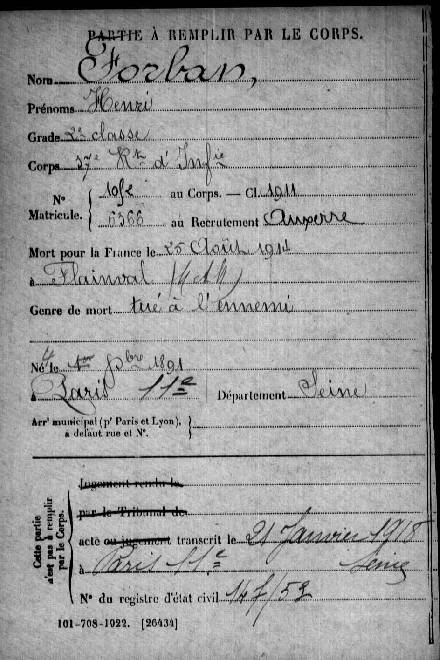 PARTIE À REMPLIR PAR LE CORPS.
Nom Forban,
Prénoms Henri
Grade 2e classe
Corps 37e Rt d'Infie
No Matricule. { au Corps. — Cl. 1911
6368 au Recrutement Auxerre
Mort pour la France le 25 Août 1914
à Flainval (M et M)
Genre de mort tué à l'ennemi
Né le 1891
à Paris 11e Département Seine
Arrt municipal (pr Paris et Lyon),
à défaut rue et No.
Jugement rendu le
par le Tribunal de
acte ou jugement transcrit le 21 Janvier 1918
à Paris 11e Seine
No du registre d'état civil 147/52
Cette partie
n'est pas à remplir
par le Corps.
101-708-1922. [26434]